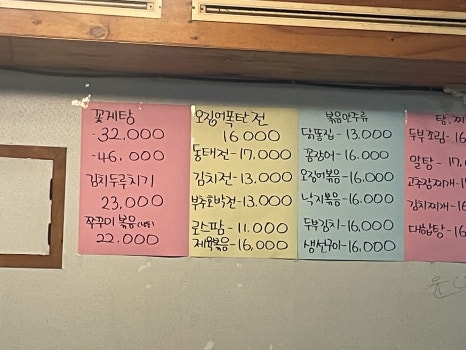 꽃게탕
-32,000
-46,000
김치두루치기
23,000
쭈꾸미볶음(냉동)
22.000
오징어폭탄전
16000
동태전-17,000
김치전-13,000
부추호박전-13,000
로스팜-11,000
제육볶음-16,000
볶음안주류
닭똥집-13,000
꼼장어-16,000
오징어볶음-16,000
낙지볶음-16,000
두부김치-16,000
생선구이-16,000
탕,찌
두부조림-16
알탕-17
고추장찌개-1
김치찌개-16
대합탕-16